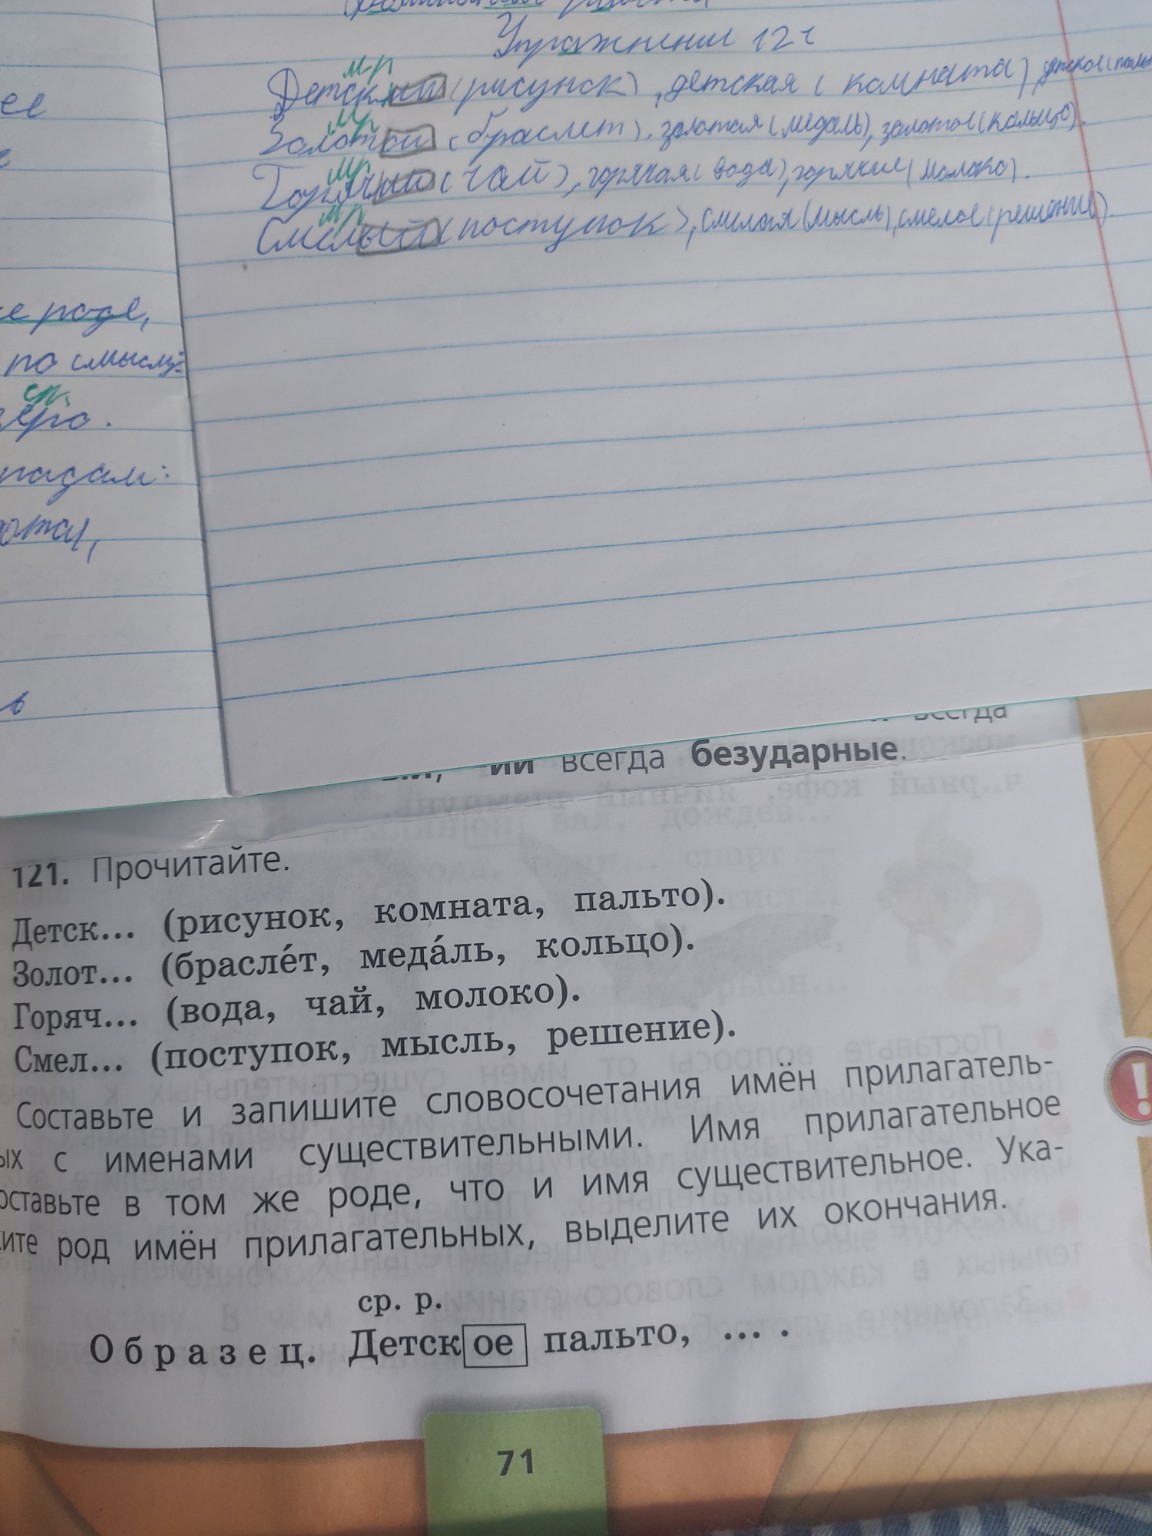 Упражнение 121
мр
Детский (рисунок), детская (комната), детское (пальто
мр
Золотой (браслет), золотая (медаль), золотое (кольцо).
мр
Горячий (чай), горячая (вода), горячие (молоко).
мр
Смелый (поступок), смелая (мысль), смелое (решение).
ее
е роде,
по смыслу:
ср.
еро.
падам:
ота),
ь
всегда
ый, -ий всегда безударные.
121. Прочитайте.
Детск... (рисунок, комната, пальто).
Золот... (брасле́т, меда́ль, кольцо).
Горяч... (вода, чай, молоко).
Смел... (поступок, мысль, решение).
Составьте и запишите словосочетания имён прилагатель-
ых с именами существительными. Имя прилагательное
оставьте в том же роде, что и имя существительное. Ука-
ите род имён прилагательных, выделите их окончания.
ср. р.
Образец. Детское пальто, ... .
71